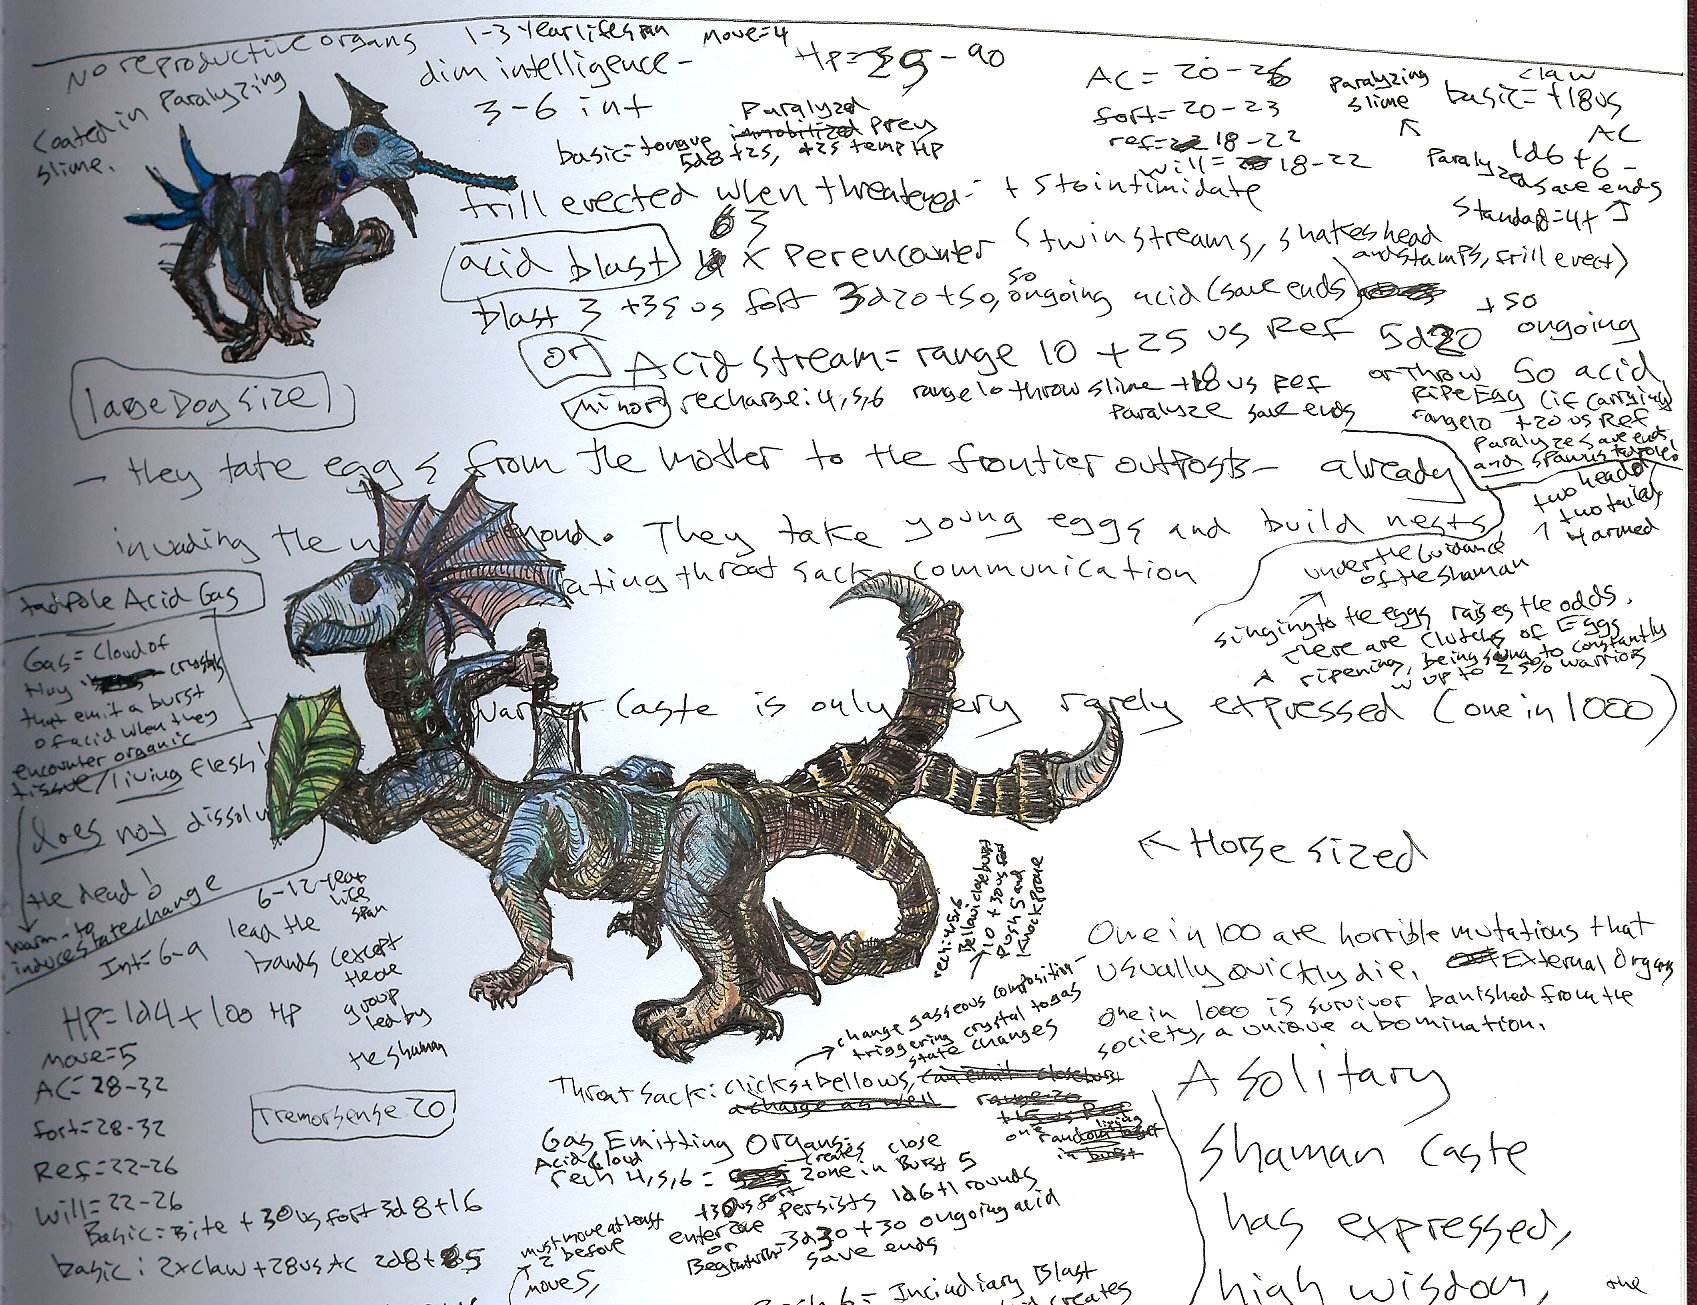 No reproductive organs 1-3 year lifespan move=4
dim intelligence -
3-6 int
Coated in Paralyzing
slime.
HP= - 90
basic= tongue Paralyzed immobilized Prey
5d8 +25, +25 temp HP
AC= 20-26
fort= 20-23
ref= 18-22
will= 18-22
Paralyzing
slime
claw
basic= +18 vs
AC
1d6+6 -
Paralyzed save ends
Standard=4+
frill erected when threatened- + 5 to intimidate
acid blast 63 x Per encounter (twin streams, shakes head
and stamps, frill erect)
blast 3 +35 vs fort 3d20+50, 50 ongoing acid (save ends)
or Acid stream= range 10 +25 vs Ref 5d20 +50
ongoing
50 acid
minor recharge: 4,5,6 range 10 throw slime +18 vs Ref
Paralyze save ends
or throw
Ripe Egg (if carrying)
range 10 +20 vs Ref
Paralyze save ends
and spawns tadpole!
large Dog size
- they take eggs from the mother to the frontier outposts- already
invading the yond. They take young eggs and build nests
ating throat sack communication
two heads
two tails
4 armed
under the Guidance
of the shaman
singing to the eggs raises the odds.
there are clutches of Eggs
ripening, being sung to constantly
up to 25% warriors
tadpole Acid Gas
Gas= cloud of
tiny crystals
that emit a burst
of acid when they
encounter organic
tissue/living flesh!
does not dissolve
the dead!
warm-to
induce state change
Warrior Caste is only very rarely expressed (one in 1000)
← Horse sized
6-12 year
life
span
lead the
bands (except
those
group
led by
the shaman
Int= 6-9
HP= 1d4 x 100 HP
move=5
AC= 28-32
fort= 28-32
Ref= 22-26
will= 22-26
Basic= Bite +30 vs fort 3d8+16
basic: 2xclaw +28 vs AC
Tremorsense 20
rech: 4,5,6
Bellow close burst
10 +30 vs fort
Push 5 and
knock Prone
One in 100 are horrible mutations that
usually quickly die. External Organs
one in 1000 is survivor banished from the
society, a unique abomination.
change gaseous composition-
triggering crystal to gas
state changes
Throat sack: clicks + bellows, can emit close burst
a charge as well range 20
+15 vs Ref
one living
random target
in burst
Gas Emitting Organs:
Acid Cloud
rech 4,5,6 = creates close
zone in Burst 5
+30 vs fort persists 1d6+1 rounds
enter zone
or
Begin turn 3d30 +30 ongoing acid
save ends
must move at least
2 before
move 5,
Rech 6 = Incindiary Blast
creates
A solitary
shaman caste
has expressed,
high wisdom, the